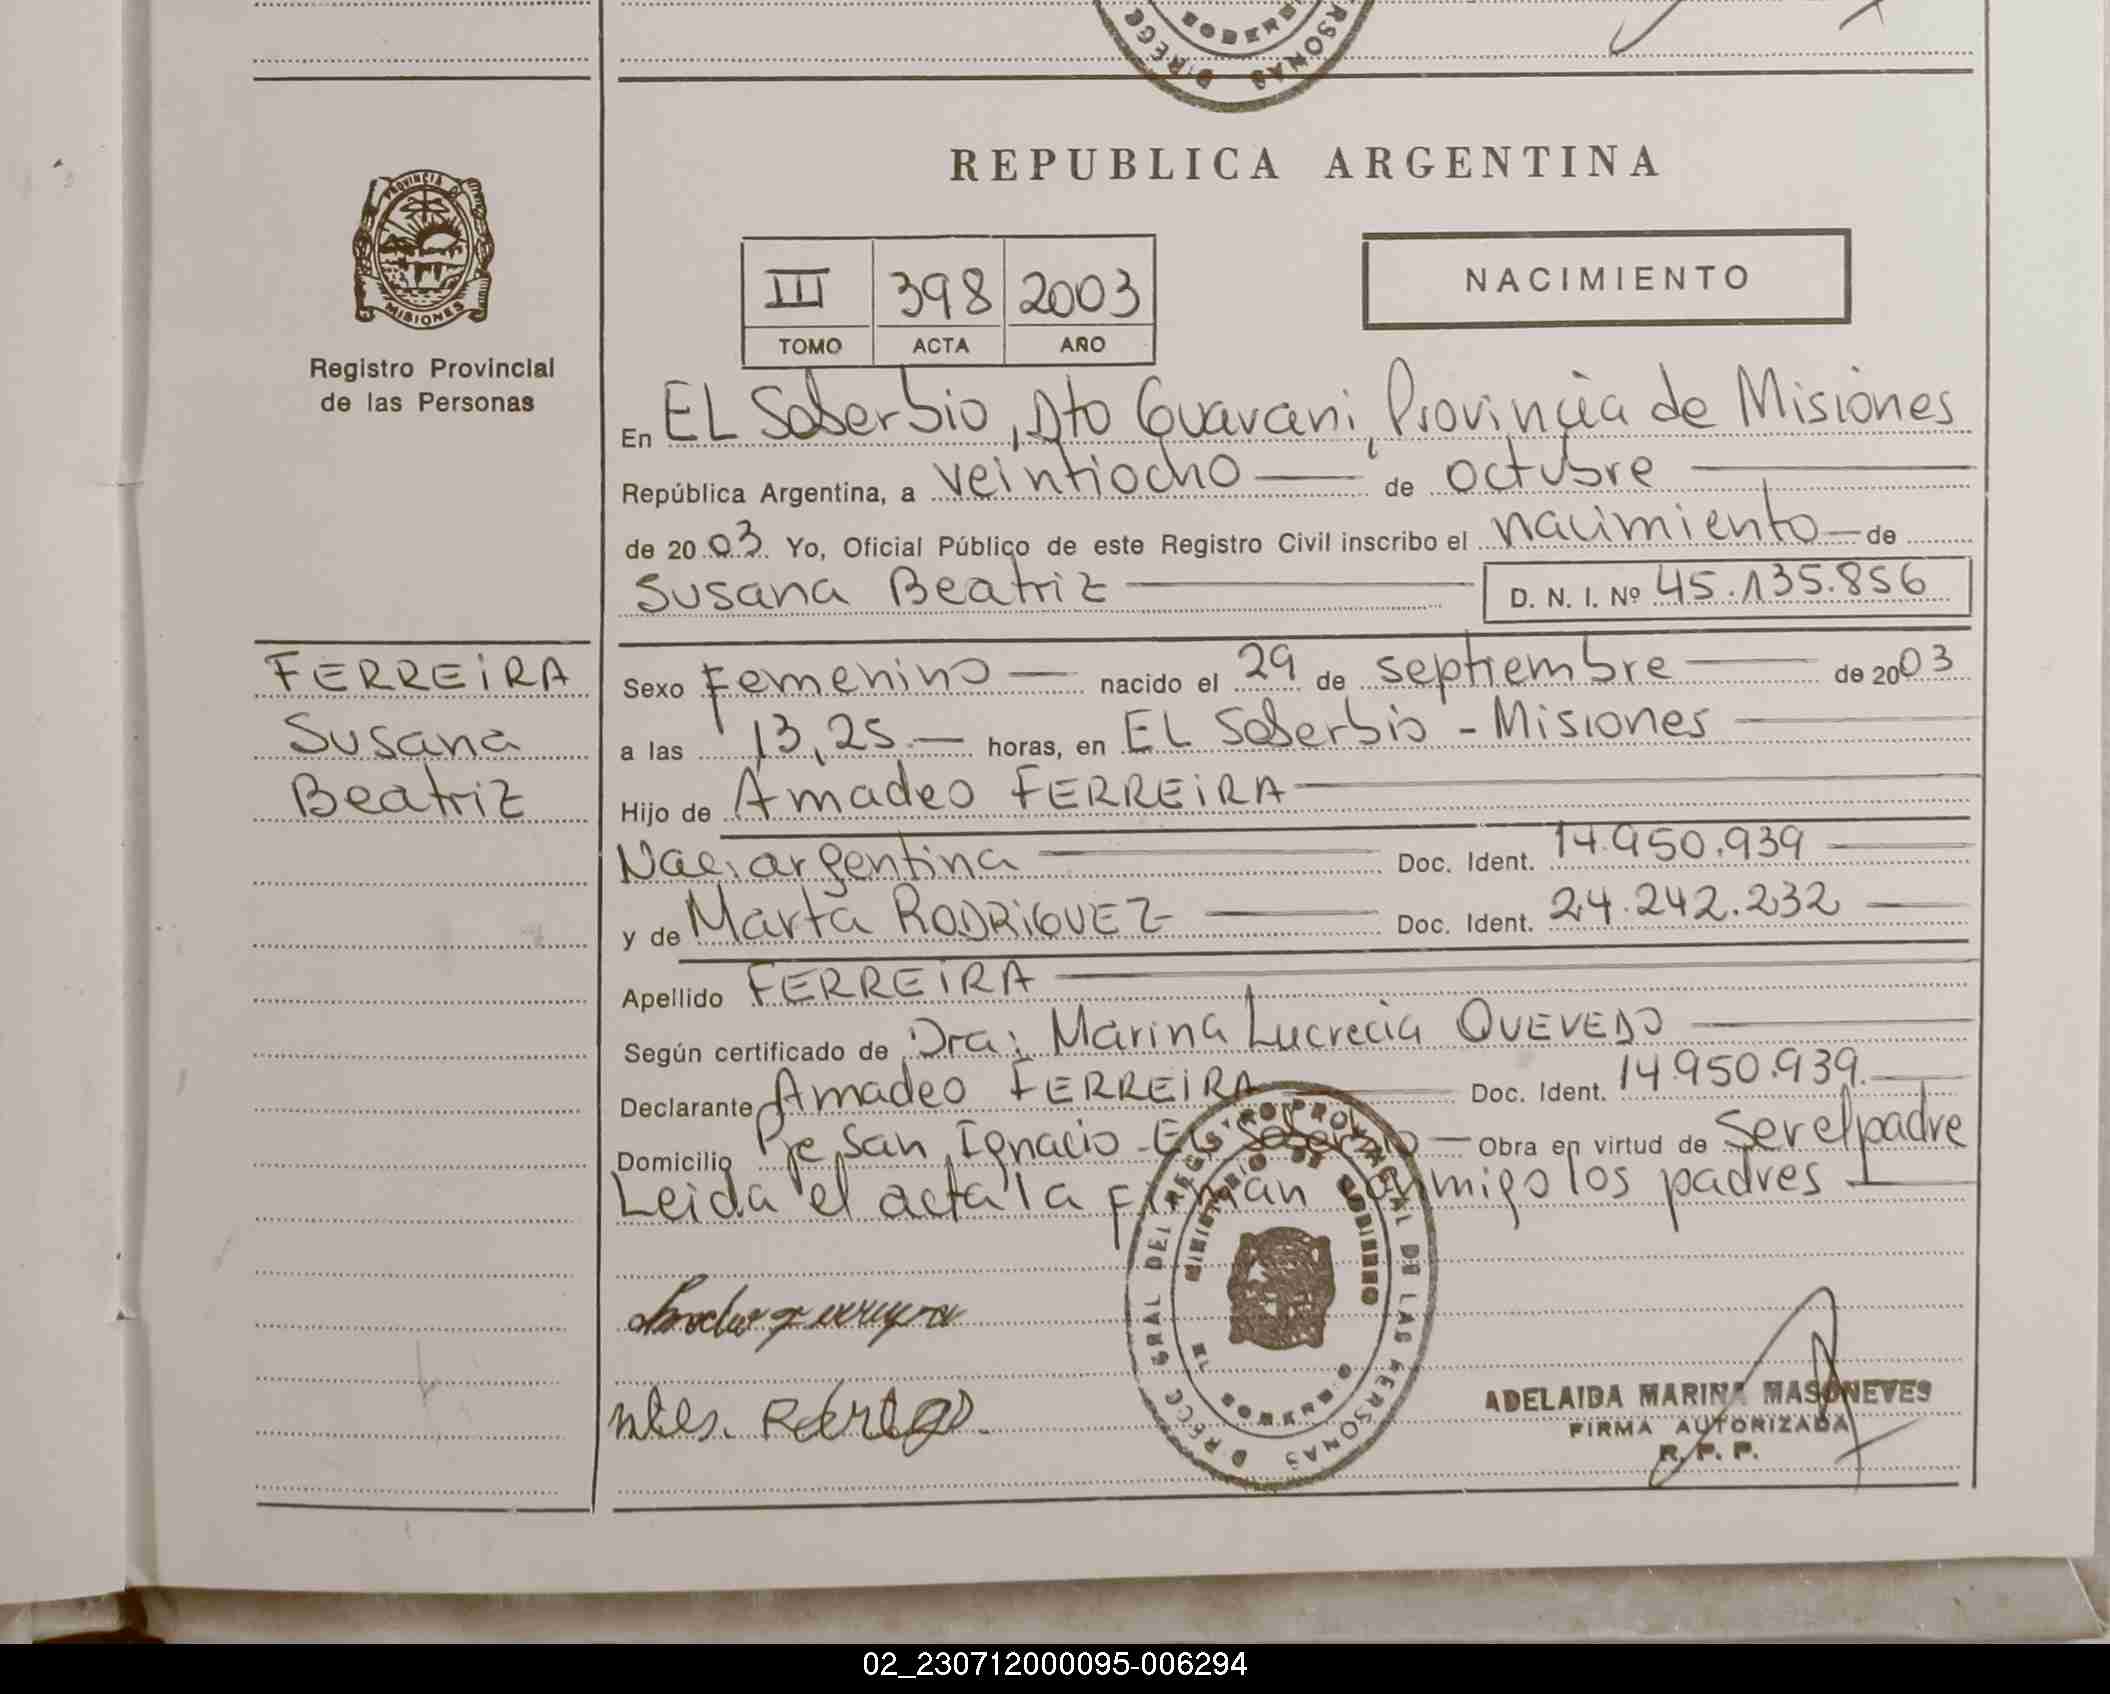 REPUBLICA ARGENTINA
PROVINCIA DE
MISIONES
Registro Provincial
de las Personas
III 398 2003
TOMO ACTA AÑO
NACIMIENTO
En EL Soberbio, Dto Guarani, Provincia de Misiones
República Argentina, a veintiocho de octubre
de 2003 Yo, Oficial Público de este Registro Civil inscribo el nacimiento de
Susana Beatriz D. N. I. Nº 45.135.856
FERREIRA
Susana
Beatriz
Sexo Femenino nacido el 29 de septiembre de 2003
a las 13,25 horas, en EL Soberbio - Misiones
Hijo de Amadeo FERREIRA
Nac. argentina Doc. Ident. 14.950.939
y de Marta RODRIGUEZ Doc. Ident. 24.242.232
Apellido FERREIRA
Según certificado de Dra: Marina Lucrecia QUEVEDO
Declarante Amadeo FERREIRA Doc. Ident. 14.950.939.
Domicilio Pje San Ignacio - EL Soberbio Obra en virtud de ser el padre
Leida el acta la firman conmigo los padres
DIRECC GRAL DEL REGISTRO PROVINCIAL DE LAS PERSONAS
MINISTERIO DE GOBIERNO
ADELAIDA MARINA MASONEVES
FIRMA AUTORIZADA
R. P. P.
02_230712000095-006294